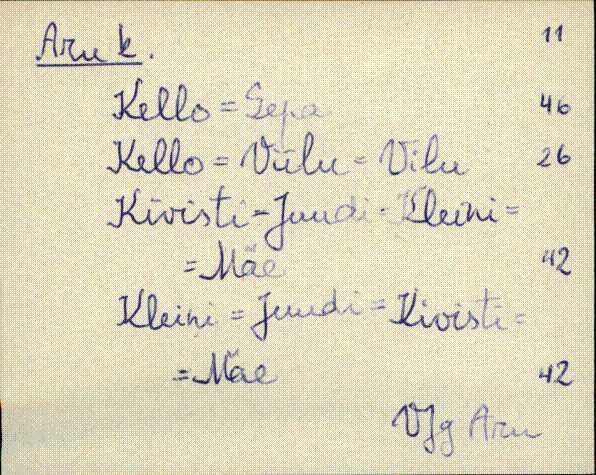 Aru k. 11
Kello = Sepa 46
Kello = Viilu = Vilu 26
Kivisti = Juudi = Kleini =
= Mäe 42
Kleini = Juudi = Kivisti =
= Mäe 42
VJg Aru